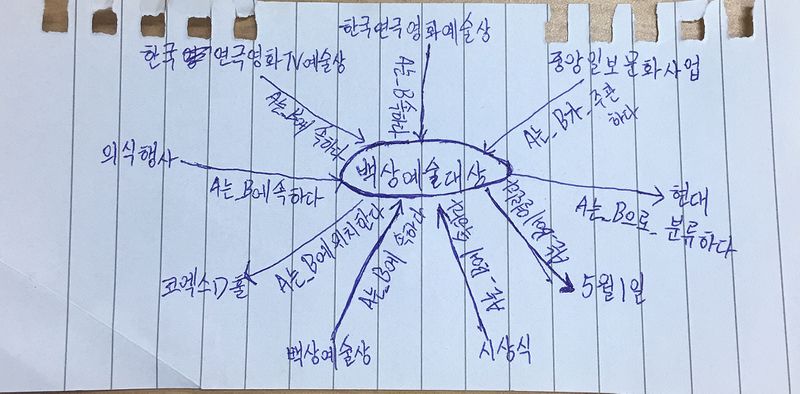 한국연극영화예술상
한국 연극영화TV예술상
중앙일보문화사업
A는_B에 속하다
A는_B속하다
A는_B가_주관
하다
의식행사
A는_B에속하다
백상예술대상
현대
A는_B으로_분류하다
코엑스D홀
A는_B에위치한다
A는_B에
속하다
5월1일
백상예술상
시상식